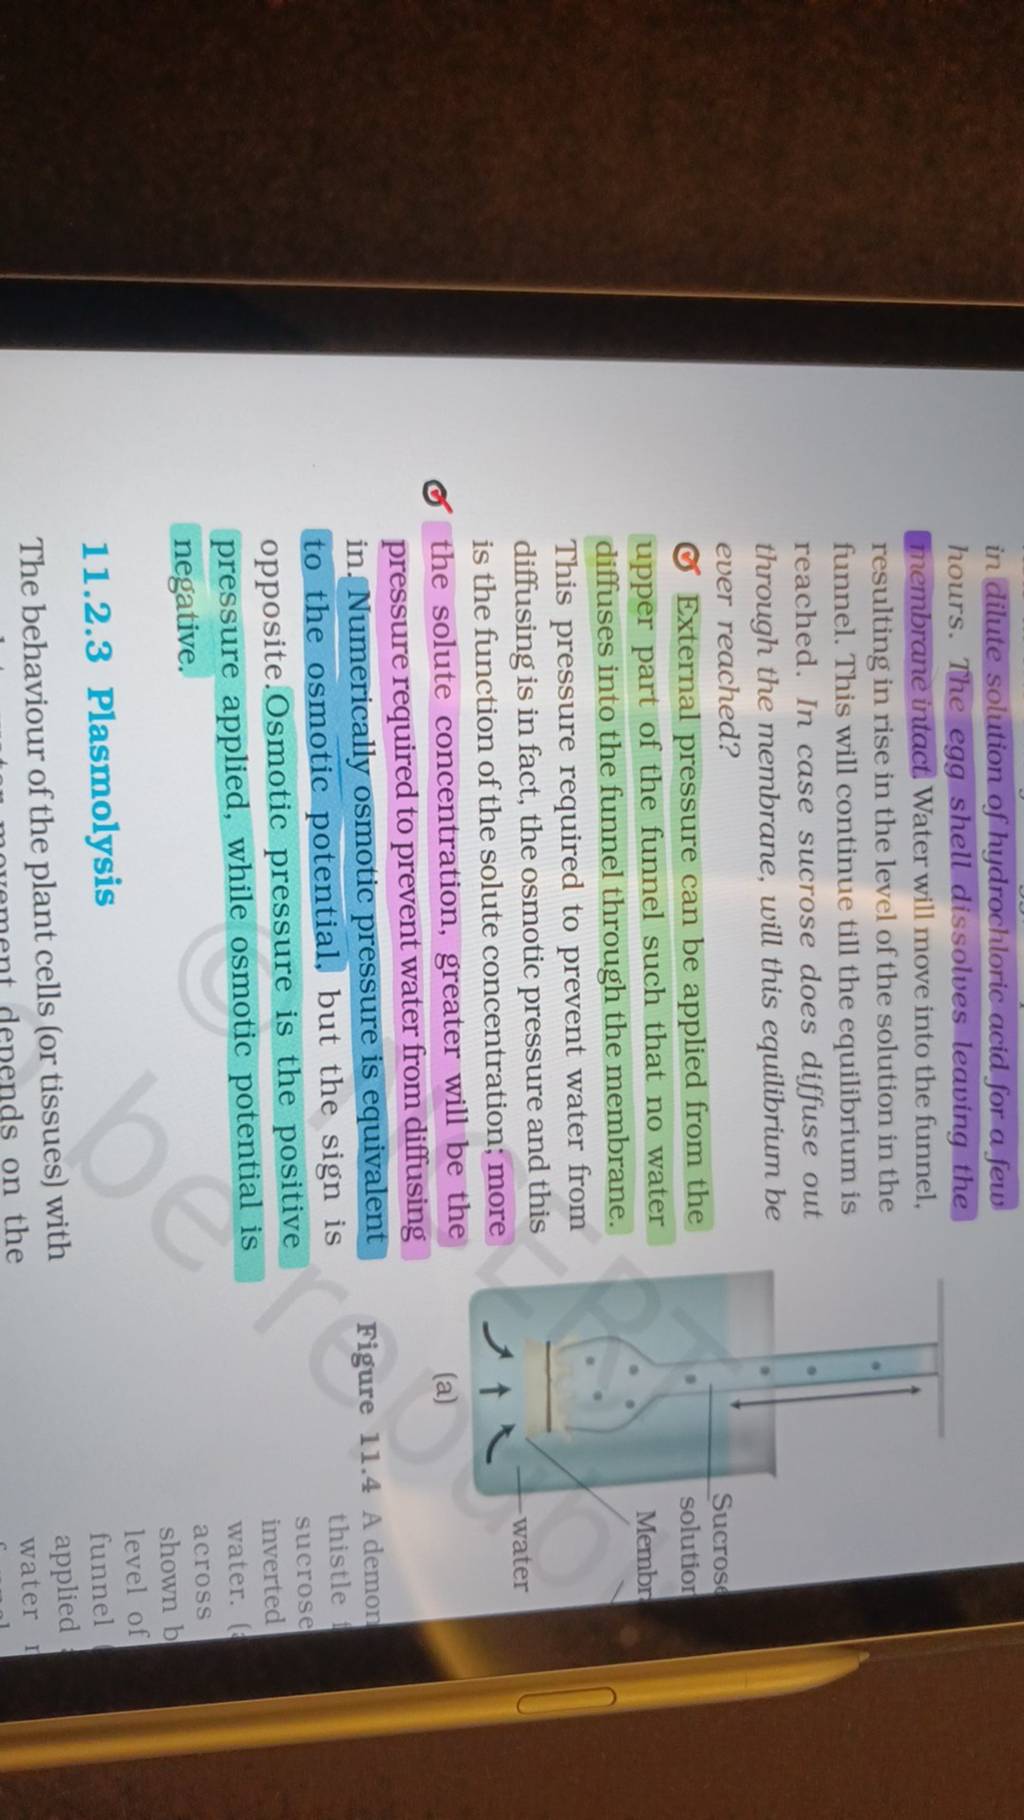 in dilute solution of hydrochloric acid for a few
hours. The egg shell dissolves leaving the
membrane intact. Water will move into the funnel,
resulting in rise in the level of the solution in the
funnel. This will continue till the equilibrium is
reached. In case sucrose does diffuse out
through the membrane, will this equilibrium be
ever reached?
External pressure can be applied from the
upper part of the funnel such that no water
diffuses into the funnel through the membrane.
This pressure required to prevent water from
diffusing is in fact, the osmotic pressure and this
is the function of the solute concentration; more
the solute concentration, greater will be the
pressure required to prevent water from diffusing
in. Numerically osmotic pressure is equivalent
to the osmotic potential, but the sign is
opposite. Osmotic pressure is the positive
pressure applied, while osmotic potential is
negative.
11.2.3 Plasmolysis
The behaviour of the plant cells (or tissues) with
movement depends on the
Sucrose
solution
Membr
water
(a)
Figure 11.4 A demon
thistle f
sucrose
inverted
water. (
across
shown b
level of
funnel (
applied
water
© NCERT
be republ